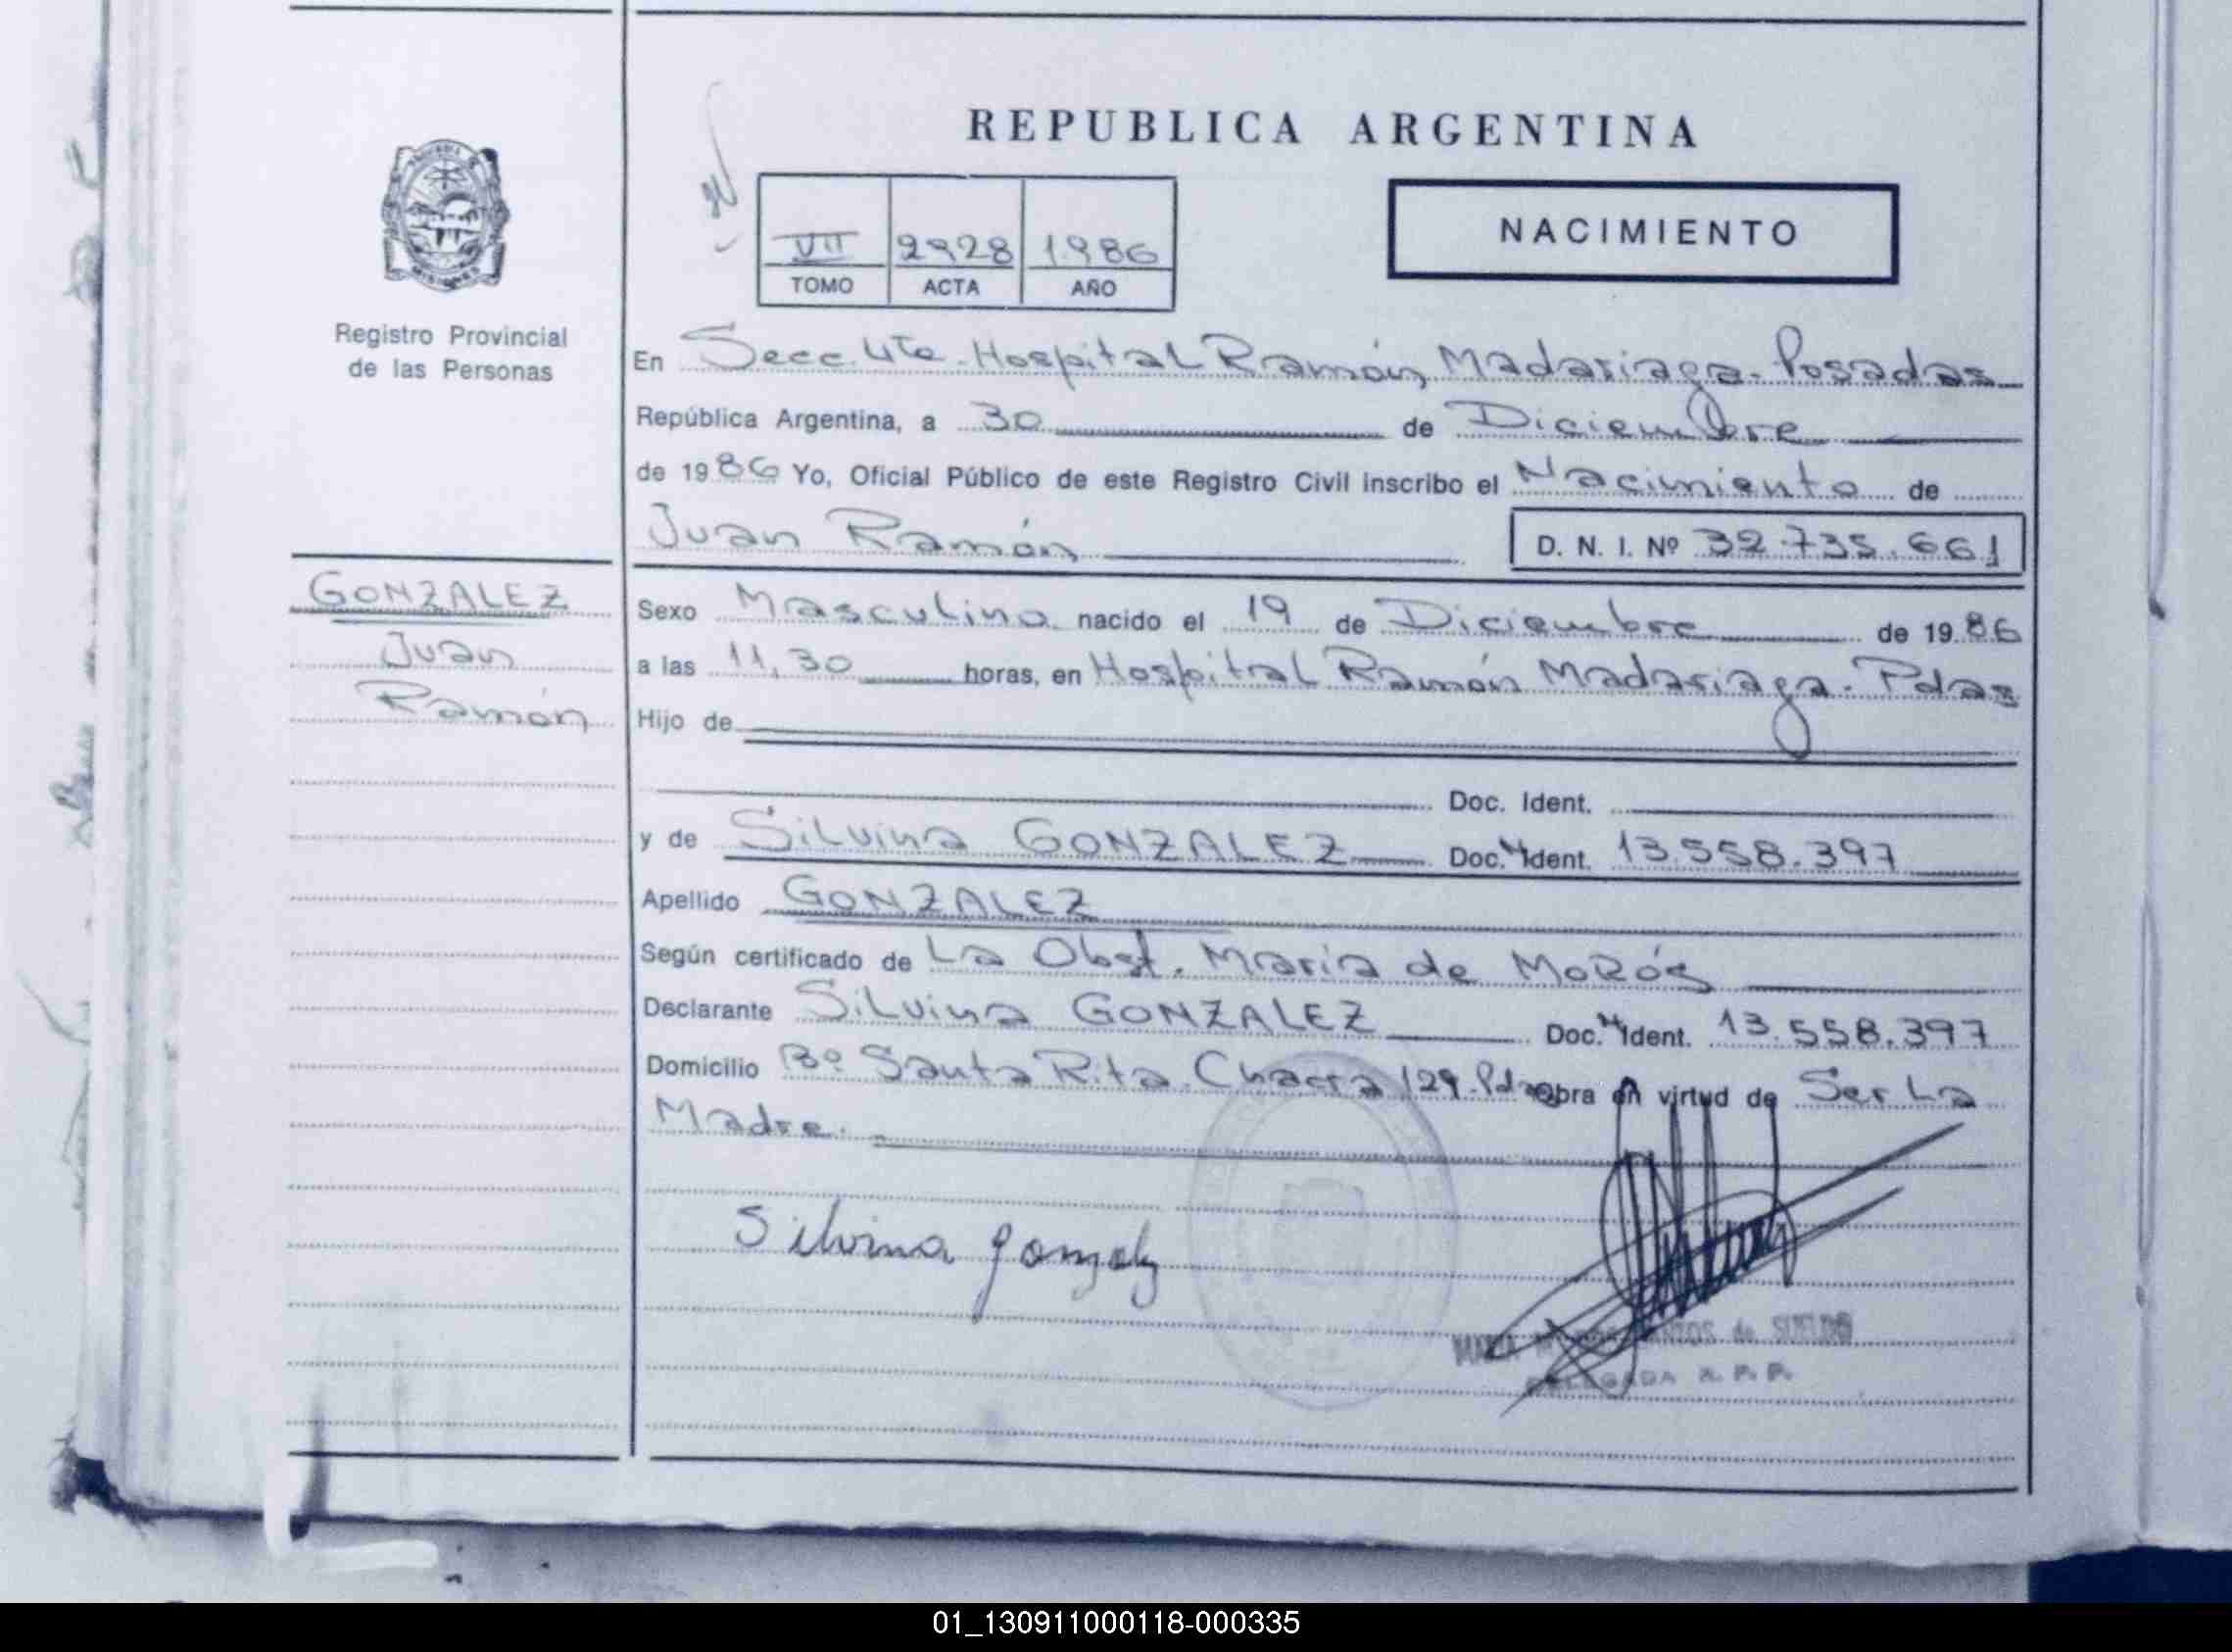 REPUBLICA ARGENTINA
VII 2928 1986
TOMO ACTA AÑO
NACIMIENTO
Registro Provincial
de las Personas
En Secc. 4Ta. Hospital Ramón Madariaga - Posadas
República Argentina, a 30 de Diciembre
de 1986 Yo, Oficial Público de este Registro Civil inscribo el Nacimiento de
Juan Ramón D. N. I. Nº 32.735.661
GONZALEZ
Juan
Ramón
Sexo Masculino nacido el 19 de Diciembre de 1986
a las 11,30 horas, en Hospital Ramón Madariaga - Pdas
Hijo de
Doc. Ident.
y de Silvina GONZALEZ Doc. Ident. 13.558.397
Apellido GONZALEZ
Según certificado de La Obst. María de
Declarante Silvina GONZALEZ Doc. Ident. 13.558.397
Domicilio Bº Santa Rita Chacra 129 - Pdas obra en virtud de Ser La
Madre.
Silvina Gonzalez
de SUELDO
DELEGADA R. P. P.
01_130911000118-000335